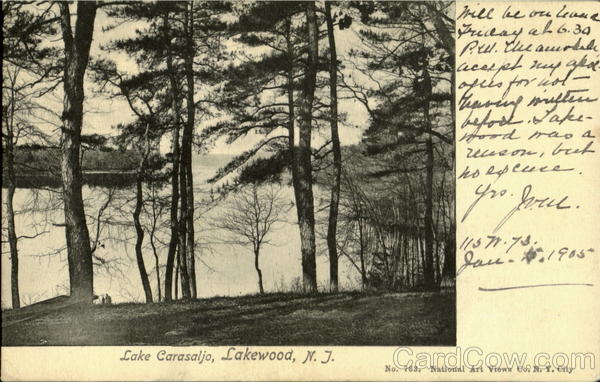 Will be on hand
Friday at 6.30
P.M. Meanwhile
accept my apol-
ogies for not
having written
before. Lake-
wood was a
reason, but
no excuse.
Yrs.
113 W. 73.
Jan - 1905
Lake Carasaljo, Lakewood, N. J.
No. 763. National Art Views Co. N. Y. City
CardCow.com